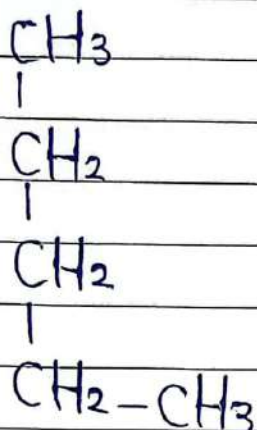 CH3
|
CH2
|
CH2
|
CH2-CH3